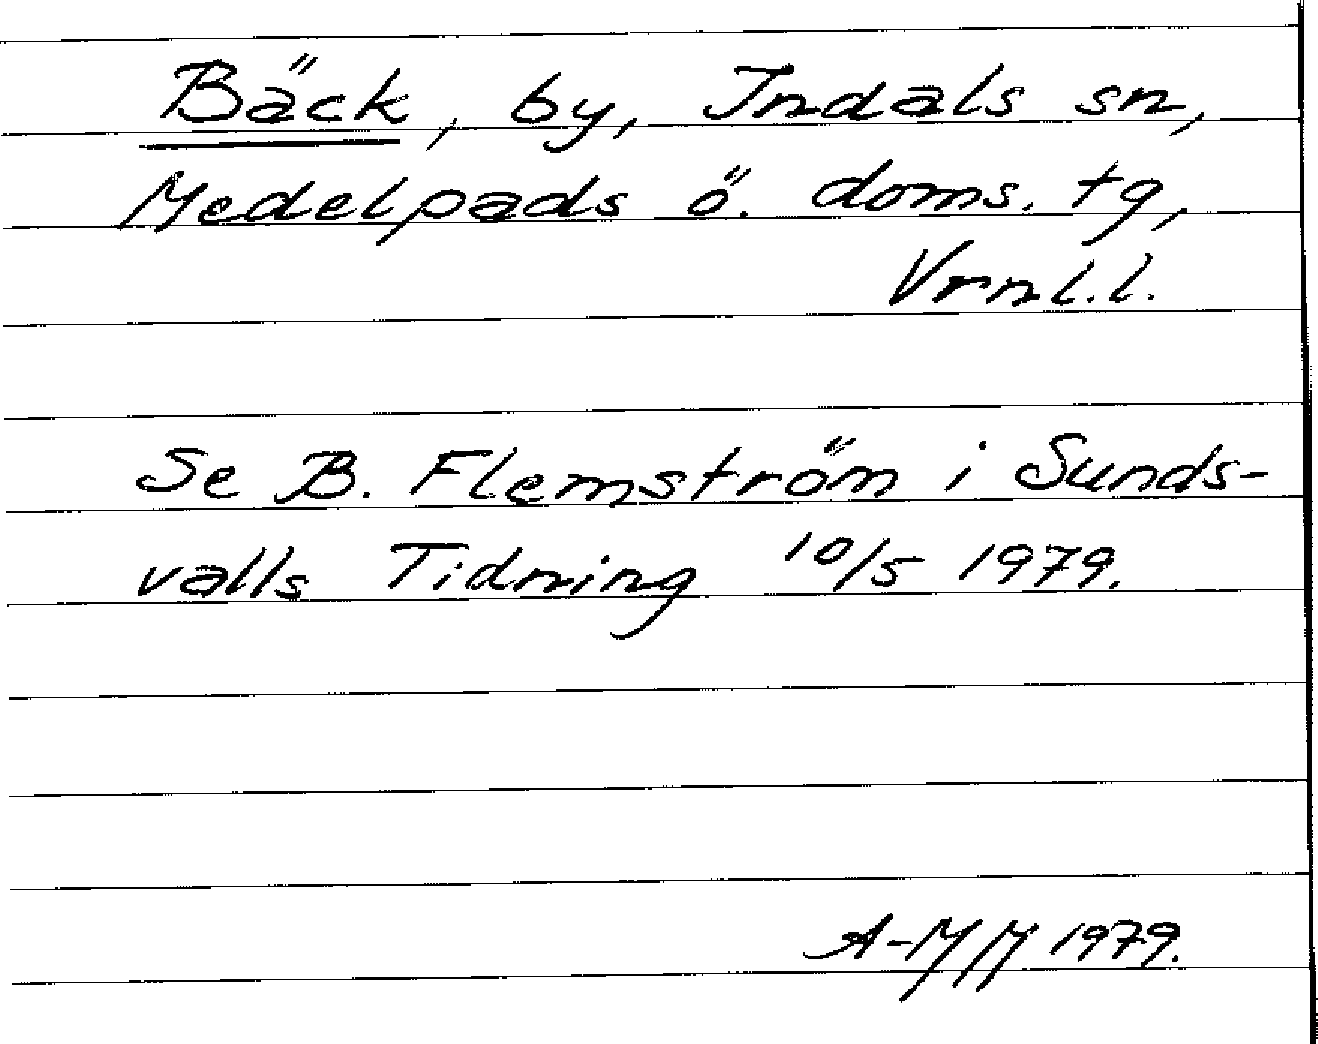 Bäck, by, Indals sn,
Medelpads ö. doms. tg,
Vrnl.l.
Se B. Flemström i Sunds-
valls Tidning 10/5 1979.
A-MM 1979.